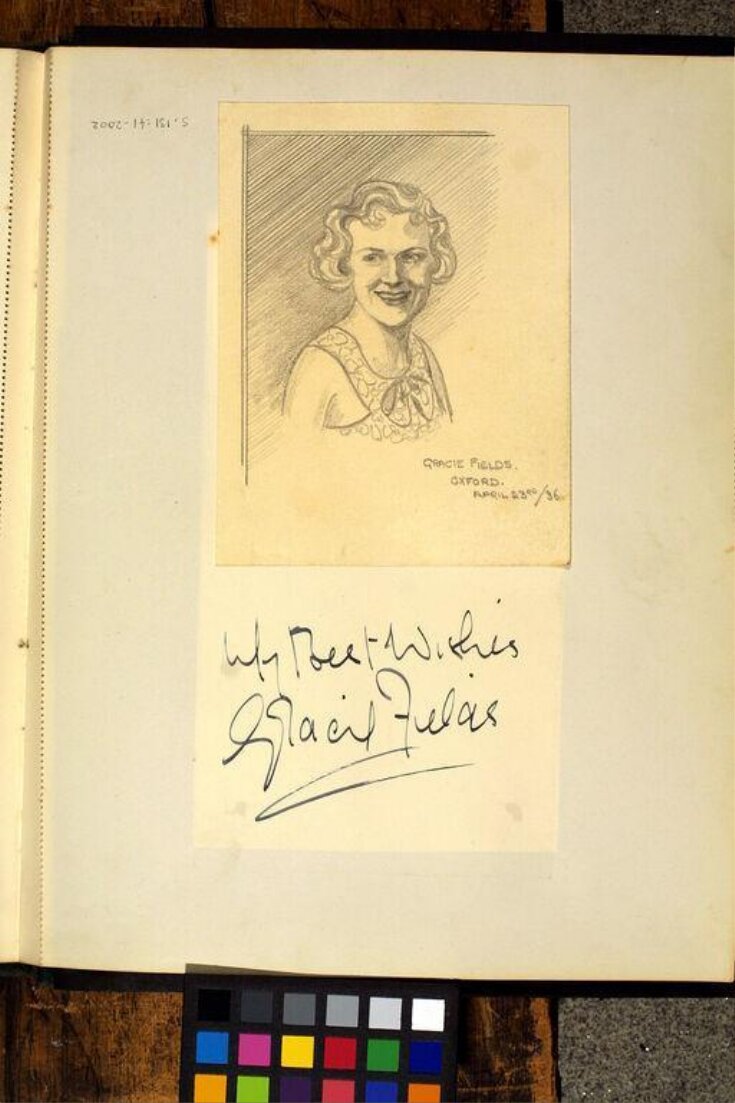 S.131:41-2002
GRACIE FIELDS.
OXFORD.
APRIL 23RD/36.
My Best Wishes
Gracie Fields